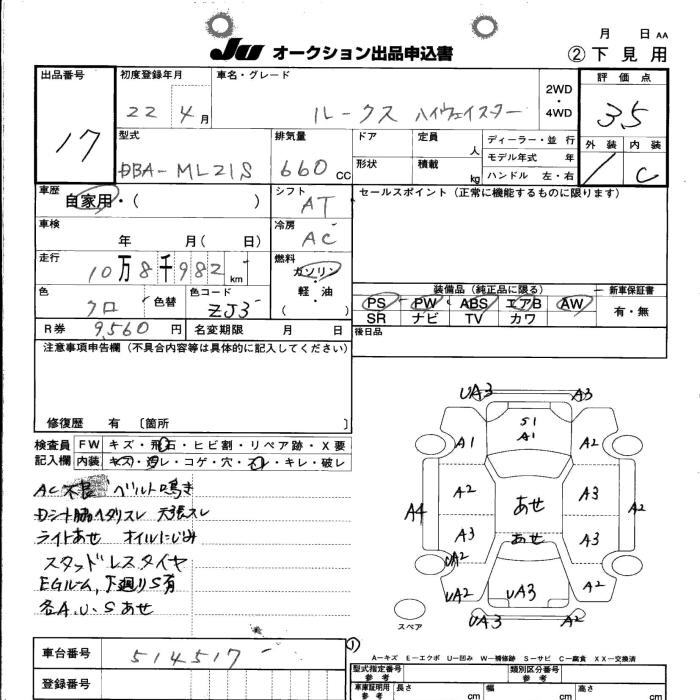 月 日 AA
JU オークション出品申込書 ②下見用
出品番号 初度登録年月 車名・グレード 評価点
17 22 4月 ルークス ハイウェイスター 2WD・4WD 35
型式 排気量 ドア 定員 人 ディーラー・並行 外装 内装
DBA-ML21S 660CC 形状 積載 kg モデル年式 年 C
ハンドル 左・右
車歴 シフト セールスポイント(正常に機能するものに限ります)
自家用・( ) AT
車検 冷房
年 月( 日) AC
走行 燃料
10万8千982km ガソリン・軽油
色 色替 色コード ( ) 装備品(純正品に限る) 新車保証書
クロ ZJ3 PS PW ABS エアB AW 有・無
SR ナビ TV カワ
R券 9,560円 名変期限 月 日 後日品
注意事項申告欄(不具合内容等は具体的に記入してください)
修復歴 有 〔箇所 〕
検査員記入欄 FW キズ・飛石・ヒビ割・リペア跡・X要
内装 キズ・汚レ・コゲ・穴・スレ・キレ・破レ
AC不良 ベルト鳴き
Dシート肪ヘタリスレ 天張スレ
ライトあせ オイルにじみ
スタッドレスタイヤ
EGルーム、下廻りS有
各A.U.Sあせ
UA3 A3
S1
A1 A1 A2
A2 あせ A3
A4 A2
A3 あせ A3
UA2
UA2 UA3 A2
UA3 A2
スペア
車台番号 514517
登録番号
①
A-キズ E-エクボ U-凹み W-補修跡 S-サビ C-腐食 XX-交換済
型式指定番号 参考 類別区分番号 参考
車庫証明用 参考 長さ cm 幅 cm 高さ cm